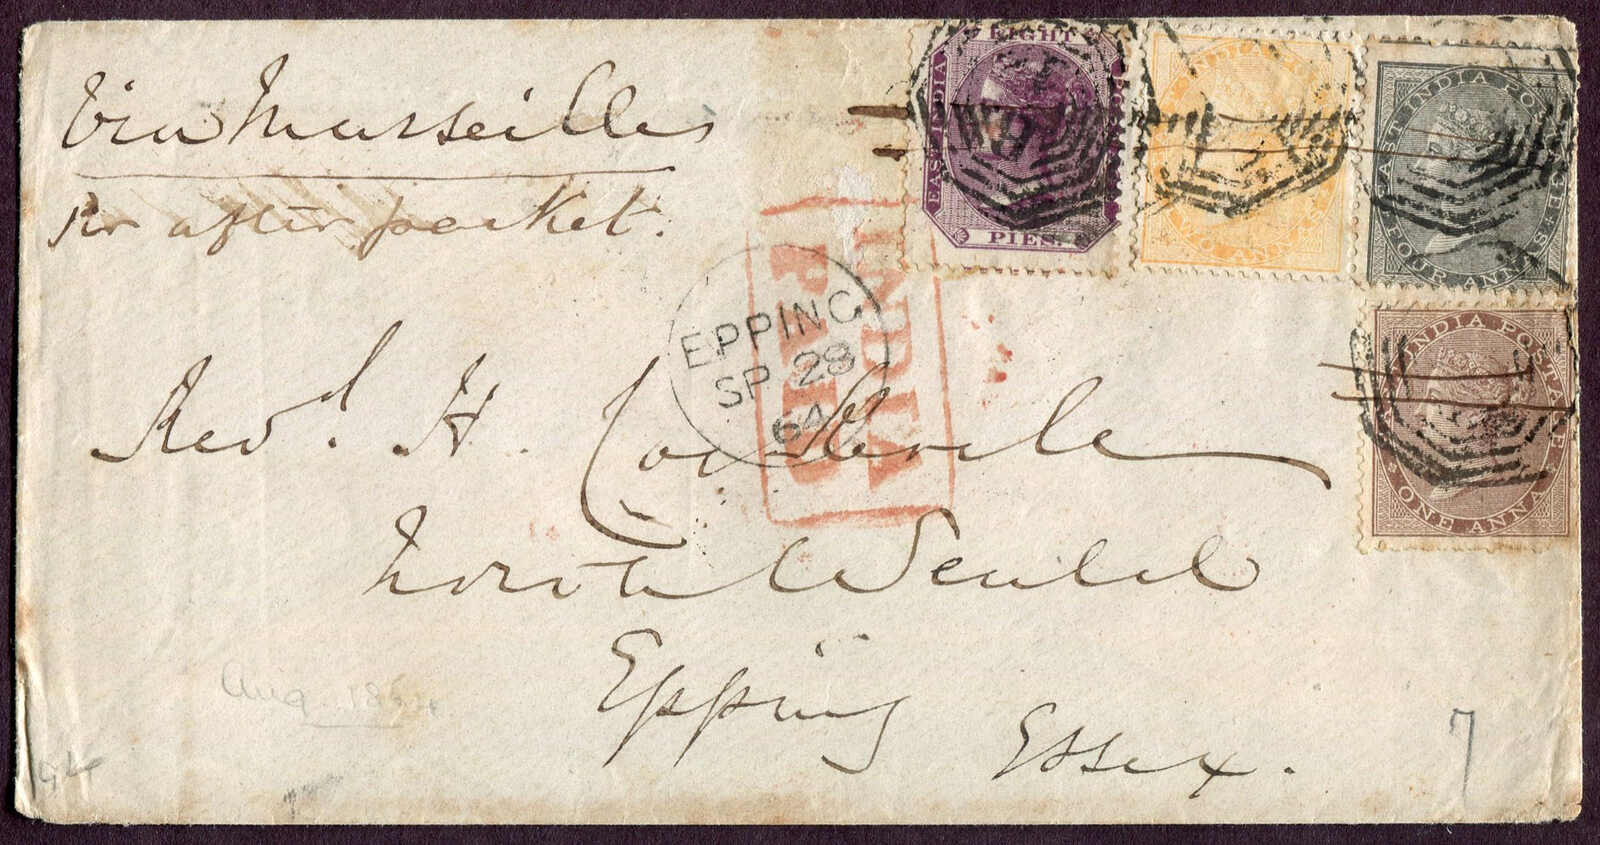 Via Marseilles
Per after packet.
EAST INDIA POSTAGE
EIGHT
PIES
INDIA
TWO ANNAS
EAST INDIA POSTAGE
FOUR ANNAS
INDIA POSTAGE
ONE ANNA
INDIA
PAID
EPPING
SP 28
64
Revd. H.
North Weald
Epping
Essex.
Aug. 1864
7